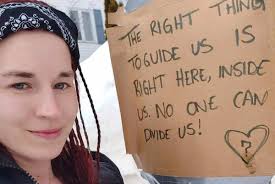 THE RIGHT THING
TO GUIDE US IS
RIGHT HERE, INSIDE
US. NO ONE CAN
DIVIDE US!
?